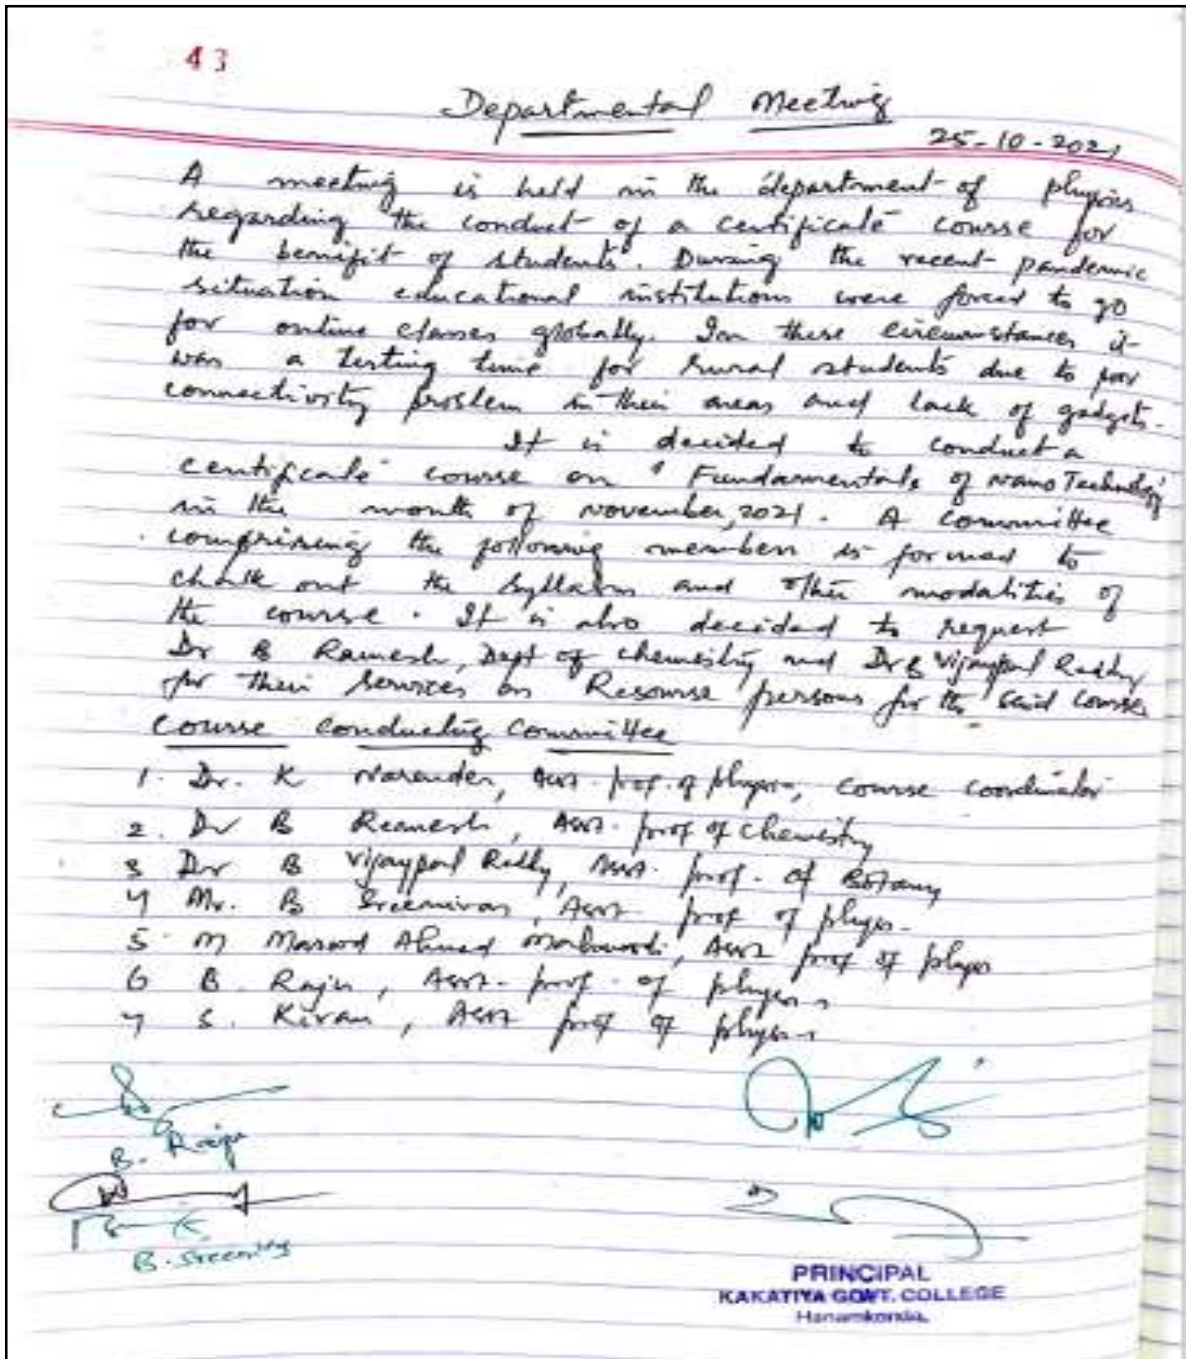 43
Departmental Meeting
25-10-2021
A meeting is held in the department of physics
regarding the conduct of a certificate course for
the benifit of students. During the recent pandemic
situation educational institutions were forced to go
for online classes globally. In these circumstances it
was a testing time for rural students due to poor
connectivity problem in their areas and lack of gadgets.
It is decided to conduct a
certificate course on " Fundamentals of nano Technology
in the month of november, 2021. A committee
comprising the following members is formed to
chalk out the syllabus and other modalities of
the course. It is also decided to request
Dr B Ramesh, Dept of chemistry and Dr B Vijaypal Reddy
for their services as Resourse persons for the said course
Course Conducting Committee
1. Dr. K Narender, Asst. prof. of physics, course coordinator
2. Dr B Ramesh, Asst. prof of chemistry
3 Dr B Vijaypal Reddy, Asst. prof. of Botany
4 Mr. B Sreenivas, Asst prof of physics
5. M Masood Ahmed, Asst prof of physics
6 B. Raju, Asst. prof. of physics
7 S. Kiran, Asst prof of physics
B. Raju
B. Sreenivas
PRINCIPAL
KAKATIYA GOVT. COLLEGE
Hanamkonda.